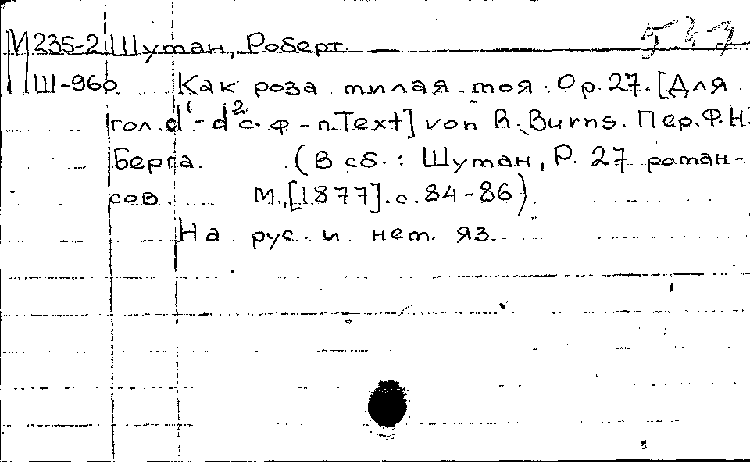 М235-2 Шуман, Роберт. 537
Ш-960 Как роза милая моя. Op.27. [Для
гол. d¹-d² с ф-п. Text] von R. Burns. Пер. Ф.Н.
Берга. (В сб.: Шуман, Р. 27 роман-
сов. М., [1877]. с. 84-86).
На рус. и нем. яз.